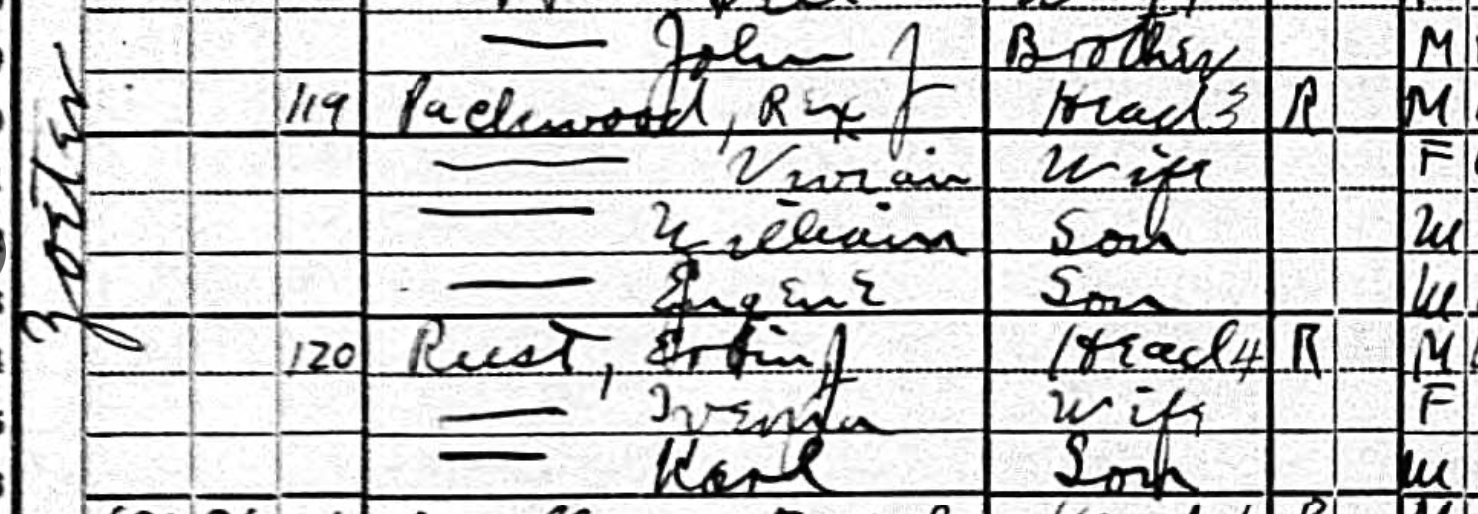 John J Brother M
119 Packwood, Rex J Head 3 R M
Vivian Wife F
William Son M
Eugene Son M
120 Rust, J Head 4 R M
Wife F
Karl Son M